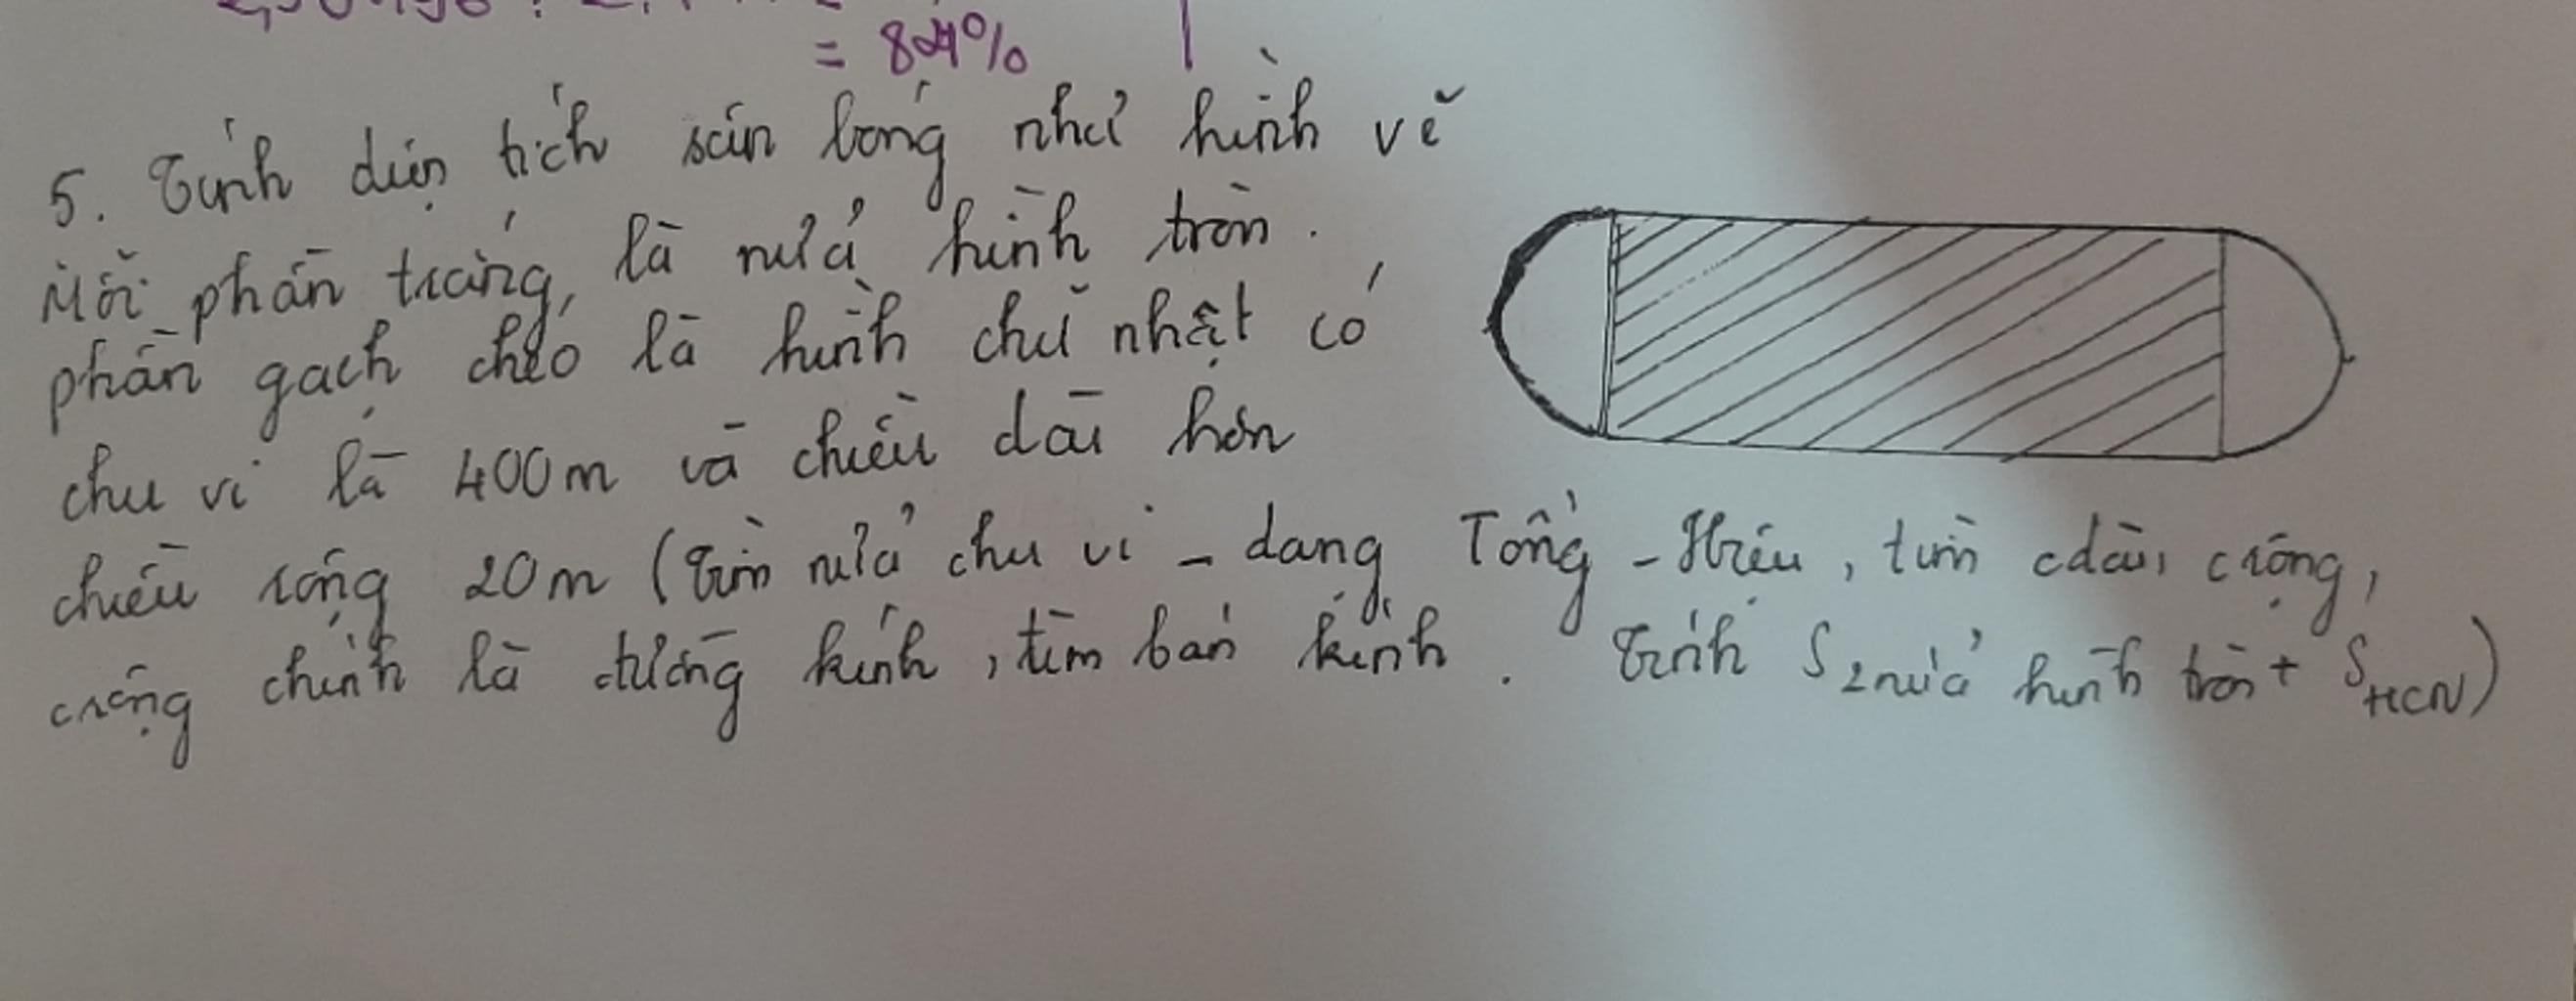 = 84%
5. Tính diện tích sân bóng như hình vẽ
Mỗi phần trắng, là nửa hình tròn.
phần gạch chéo là hình chữ nhật có
chu vi là 400m và chiều dài hơn
chiều rộng 20m (Tìm nửa chu vi - dạng Tổng - Hiệu, tìm cdài, crộng,
crộng chính là đường kính, tìm bán kính. Tính S2 nửa hình tròn + SHCN)